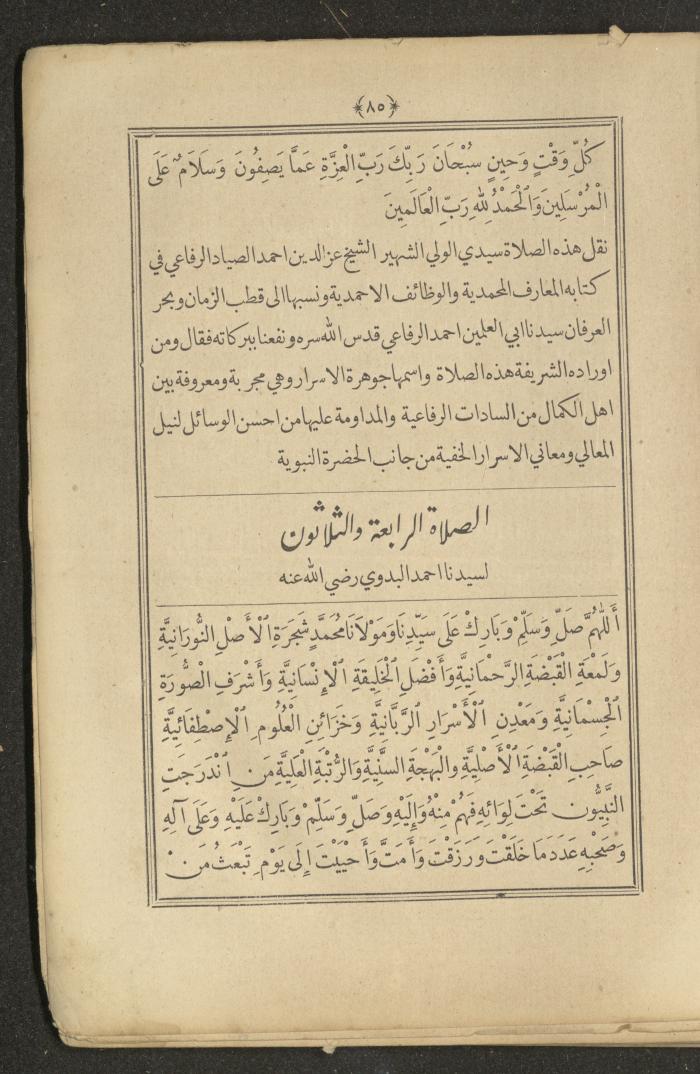 ﴿٨٥﴾
كُلِّ وَقْتٍ وَحِينٍ سُبْحَانَ رَبِّكَ رَبِّ الْعِزَّةِ عَمَّا يَصِفُونَ وَسَلَامٌ عَلَى
الْمُرْسَلِينَ وَالْحَمْدُ لِلّٰهِ رَبِّ الْعَالَمِينَ
نقل هذه الصلاة سيدي الولي الشهير الشيخ عز الدين احمد الصياد الرفاعي في
كتابه المعارف المحمدية والوظائف الاحمدية ونسبها الى قطب الزمان وبحر
العرفان سيدنا ابي العلمين احمد الرفاعي قدس الله سره ونفعنا ببركاته فقال ومن
اوراده الشريفة هذه الصلاة واسمها جوهرة الاسرار وهي مجربة ومعروفة بين
اهل الكمال من السادات الرفاعية والمداومة عليها من احسن الوسائل لنيل
المعالي ومعاني الاسرار الخفية من جانب الحضرة النبوية
الصلاة الرابعة والثلاثون
لسيدنا احمد البدوي رضي الله عنه
أَللّٰهُمَّ صَلِّ وَسَلِّمْ وَبَارِكْ عَلَى سَيِّدِنَا وَمَوْلَانَا مُحَمَّدٍ شَجَرَةِ الْأَصْلِ النُّورَانِيَّةِ
وَلَمْعَةِ الْقَبْضَةِ الرَّحْمَانِيَّةِ وَأَفْضَلِ الْخَلِيقَةِ الْإِنْسَانِيَّةِ وَأَشْرَفِ الْصُّورَةِ
الْجِسْمَانِيَّةِ وَمَعْدِنِ الْأَسْرَارِ الرَّبَّانِيَّةِ وَخَزَائِنِ الْعُلُومِ الْإِصْطِفَائِيَّةِ
صَاحِبِ الْقَبْضَةِ الْأَصْلِيَّةِ والْبَهْجَةِ السَّنِيَّةِ وَالرُّتْبَةِ الْعَلِيَّةِ مَنِ انْدَرَجَتِ
النَّبِيُّونَ تَحْتَ لِوَائِهِ فَهُمْ مِنْهُ وَإِلَيْهِ وَصَلِّ وَسَلِّمْ وَبَارِكْ عَلَيْهِ وَعَلَى آلِهِ
وَصَحْبِهِ عَدَدَ مَا خَلَقْتَ وَرَزَقْتَ وَأَمَتَّ وَأَحْيَيْتَ إِلَى يَوْمِ تَبْعَثُ مَنْ